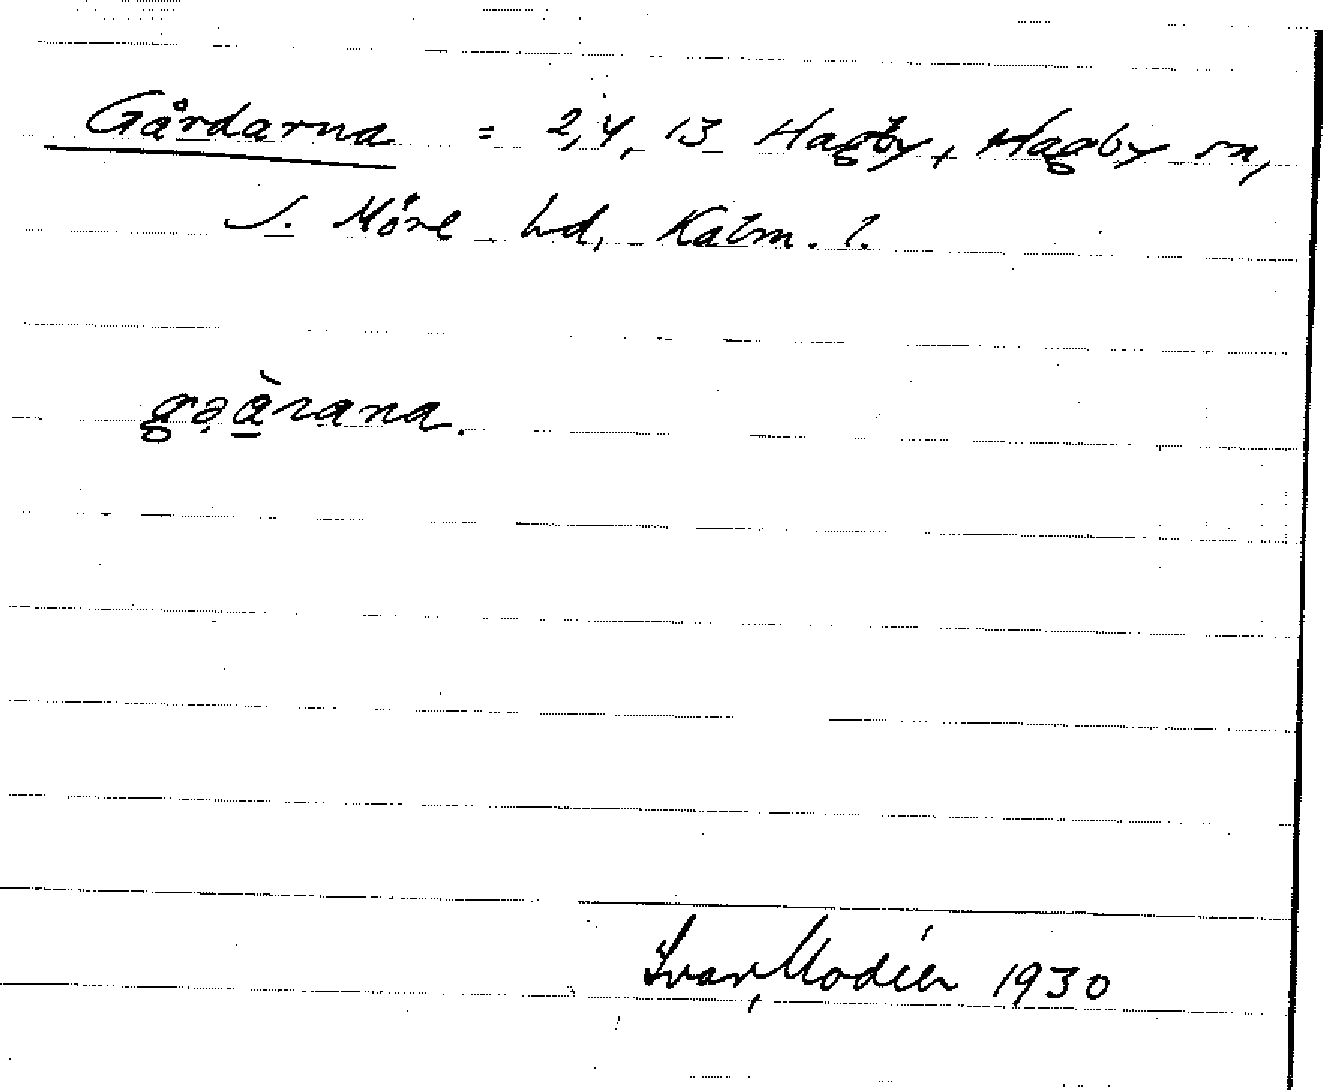 Gårdarna = 2, 4, 13 Hagby, Hagby sn,
S. Möre hd, Kalm. l.
gəàrana.
Ivar Modéer 1930